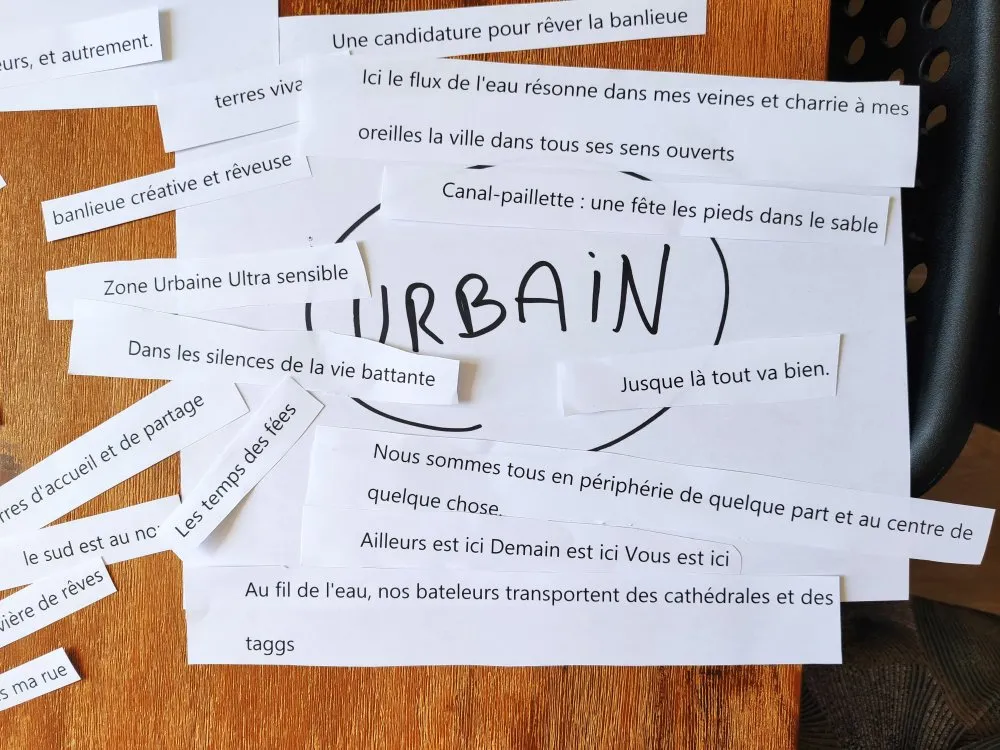 et autrement.
Une candidature pour rêver la banlieue
terres
Ici le flux de l'eau résonne dans mes veines et charrie à mes
oreilles la ville dans tous ses sens ouverts
banlieue créative et rêveuse
Canal-paillette : une fête les pieds dans le sable
Zone Urbaine Ultra sensible
URBAIN
Dans les silences de la vie battante
Jusque là tout va bien.
d'accueil et de partage
Les temps des fées
Nous sommes tous en périphérie de quelque part et au centre de
quelque chose.
le sud est au
Ailleurs est ici Demain est ici Vous est ici
de rêves
Au fil de l'eau, nos bateleurs transportent des cathédrales et des
taggs
ma rue